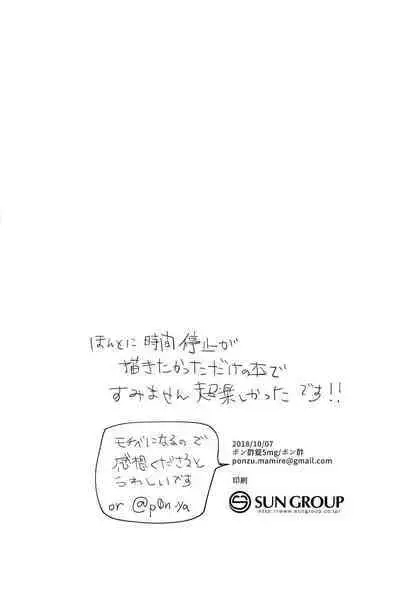 ほんとに 時間 停止が
描きたかっただけの本で
すみません 超楽しかった です!!
モチベになるので
感想くださると
うれしいです
or @p0n_ya
2018/10/07
ポン酢錠5mg/ポン酢
ponzu.mamiro@gmail.com
印刷
SUN GROUP
http://www.sungroup.co.jp/